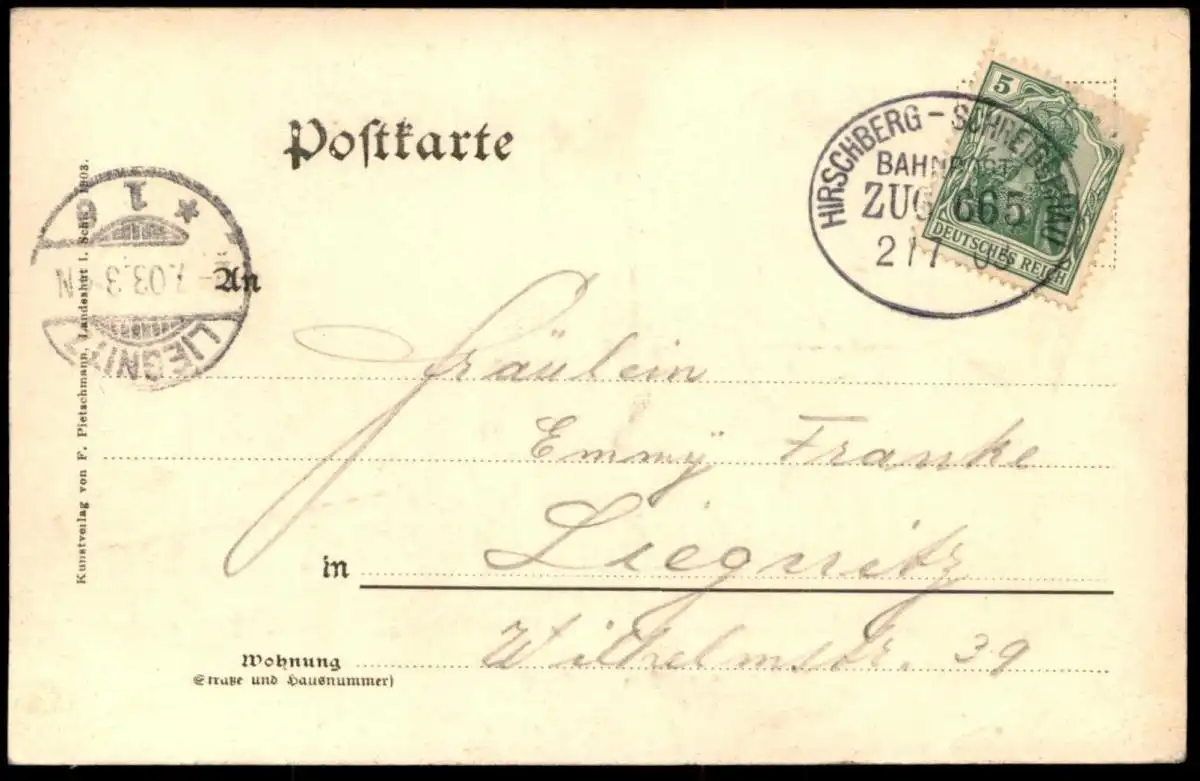 Postkarte
HIRSCHBERG - SCHREIBERHAU
BAHNPOST
ZUG 665
2 / 7 03
5
DEUTSCHES REICH
LIEGNITZ
7.03. 3-4N
* 1 c
An
Fräulein
Emmÿ Franke
in Liegnitz
Wohnung Wilhelmstr. 39
(Straße und Hausnummer)
Kunstverlag von F. Pietschmann, Landeshut i. Schl. 1903.